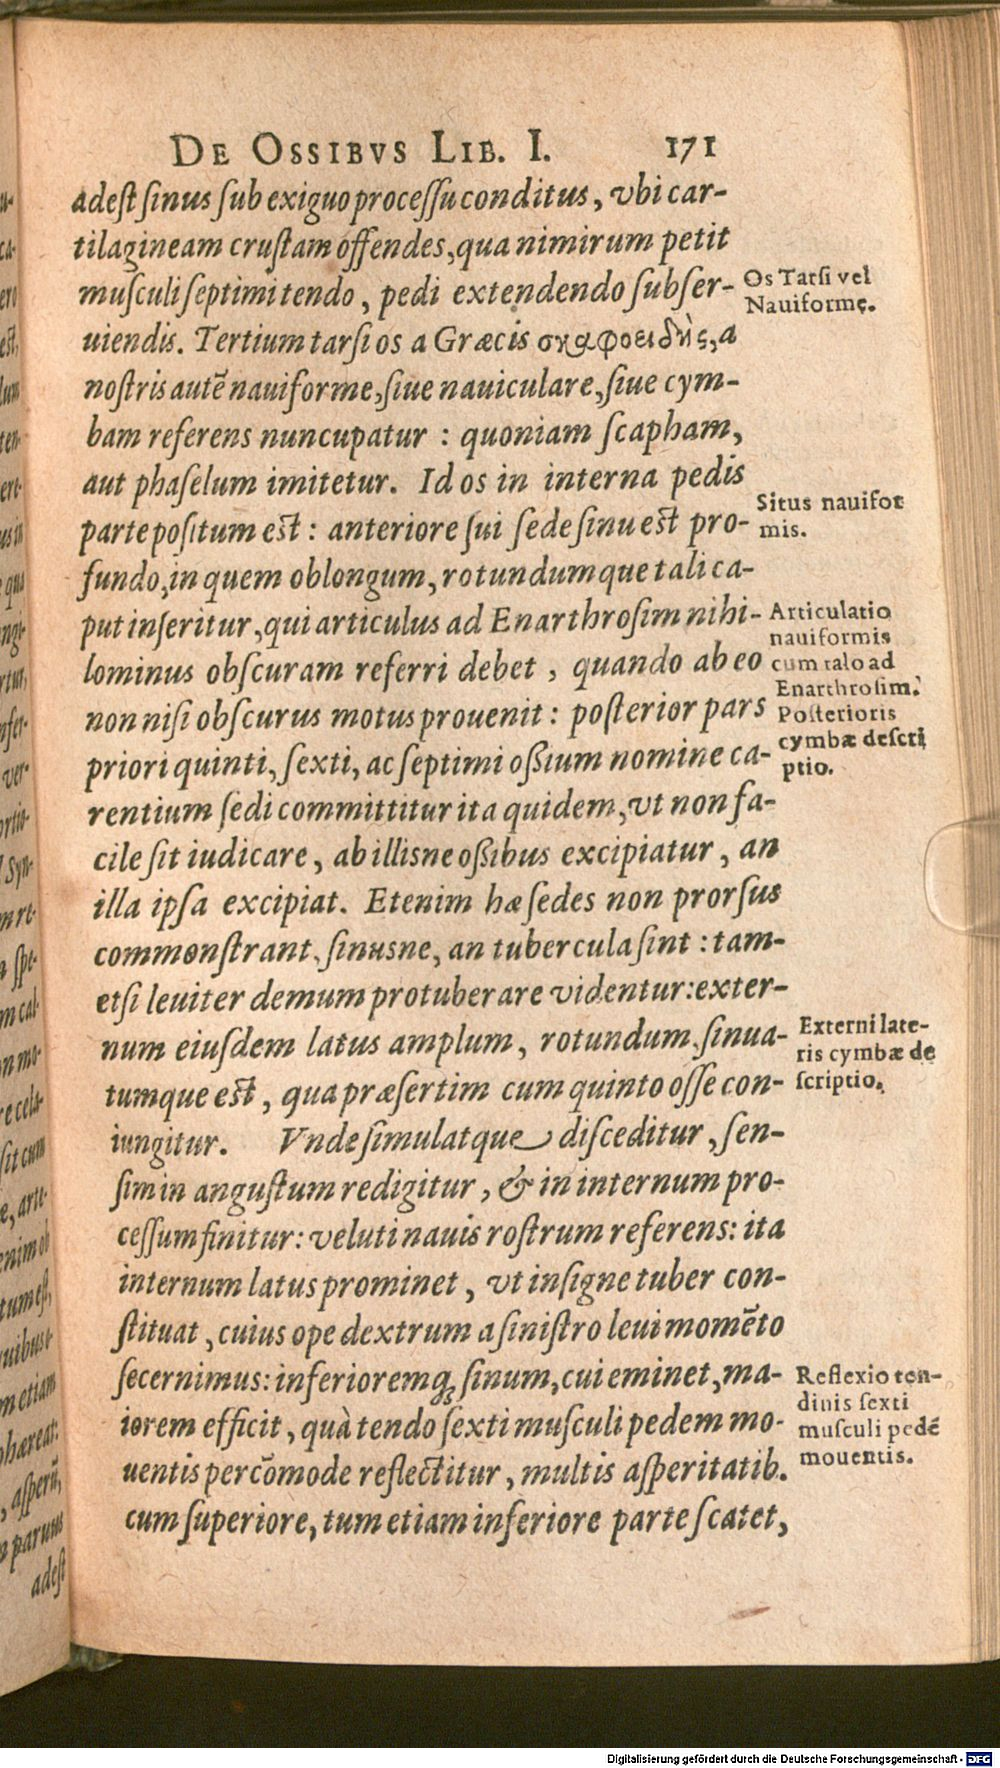 DE OSSIBVS LIB. I. 171
adest sinus sub exiguo processu conditus, vbi car-
tilagineam crustam offendes, qua nimirum petit
musculi septimi tendo, pedi extendendo subser-
uiendis. Tertium tarsi os a Græcis σκαφοειδὴς, a
nostris autẽ nauiforme, siue nauiculare, siue cym-
bam referens nuncupatur : quoniam scapham,
aut phaselum imitetur. Id os in interna pedis
parte positum est : anteriore sui sede sinu est pro-
fundo, in quem oblongum, rotundumque tali ca-
put inseritur, qui articulus ad Enarthrosim nihi-
lominus obscuram referri debet , quando ab eo
non nisi obscurus motus prouenit : posterior pars
priori quinti, sexti, ac septimi oßium nomine ca-
rentium sedi committitur ita quidem, vt non fa-
cile sit iudicare, ab illisne oßibus excipiatur, an
illa ipsa excipiat. Etenim hæ sedes non prorsus
commonstrant, sinusne, an tubercula sint : tam-
etsi leuiter demum protuberare videntur: exter-
num eiusdem latus amplum, rotundum, sinua-
tumque est, qua præsertim cum quinto osse con-
iungitur. Vnde simulatque disceditur, sen-
sim in angustum redigitur, & in internum pro-
cessum finitur: veluti nauis rostrum referens: ita
internum latus prominet, vt insigne tuber con-
stituat, cuius ope dextrum a sinistro leui momẽto
secernimus: inferioremq; sinum, cui eminet, ma-
iorem efficit, quà tendo sexti musculi pedem mo-
uentis percõmode reflectitur, multis asperitatib.
cum superiore, tum etiam inferiore parte scatet,
Os Tarsi vel
Nauiforme.
Situs nauifor
mis.
Articulatio
nauiformis
cum talo ad
Enarthrosim.
Posterioris
cymbæ descri
ptio.
Externi late-
ris cymbæ de
scriptio.
Reflexio ten-
dinis sexti
musculi pedẽ
mouentis.
adest
Digitalisierung gefördert durch die Deutsche Forschungsgemeinschaft - DFG